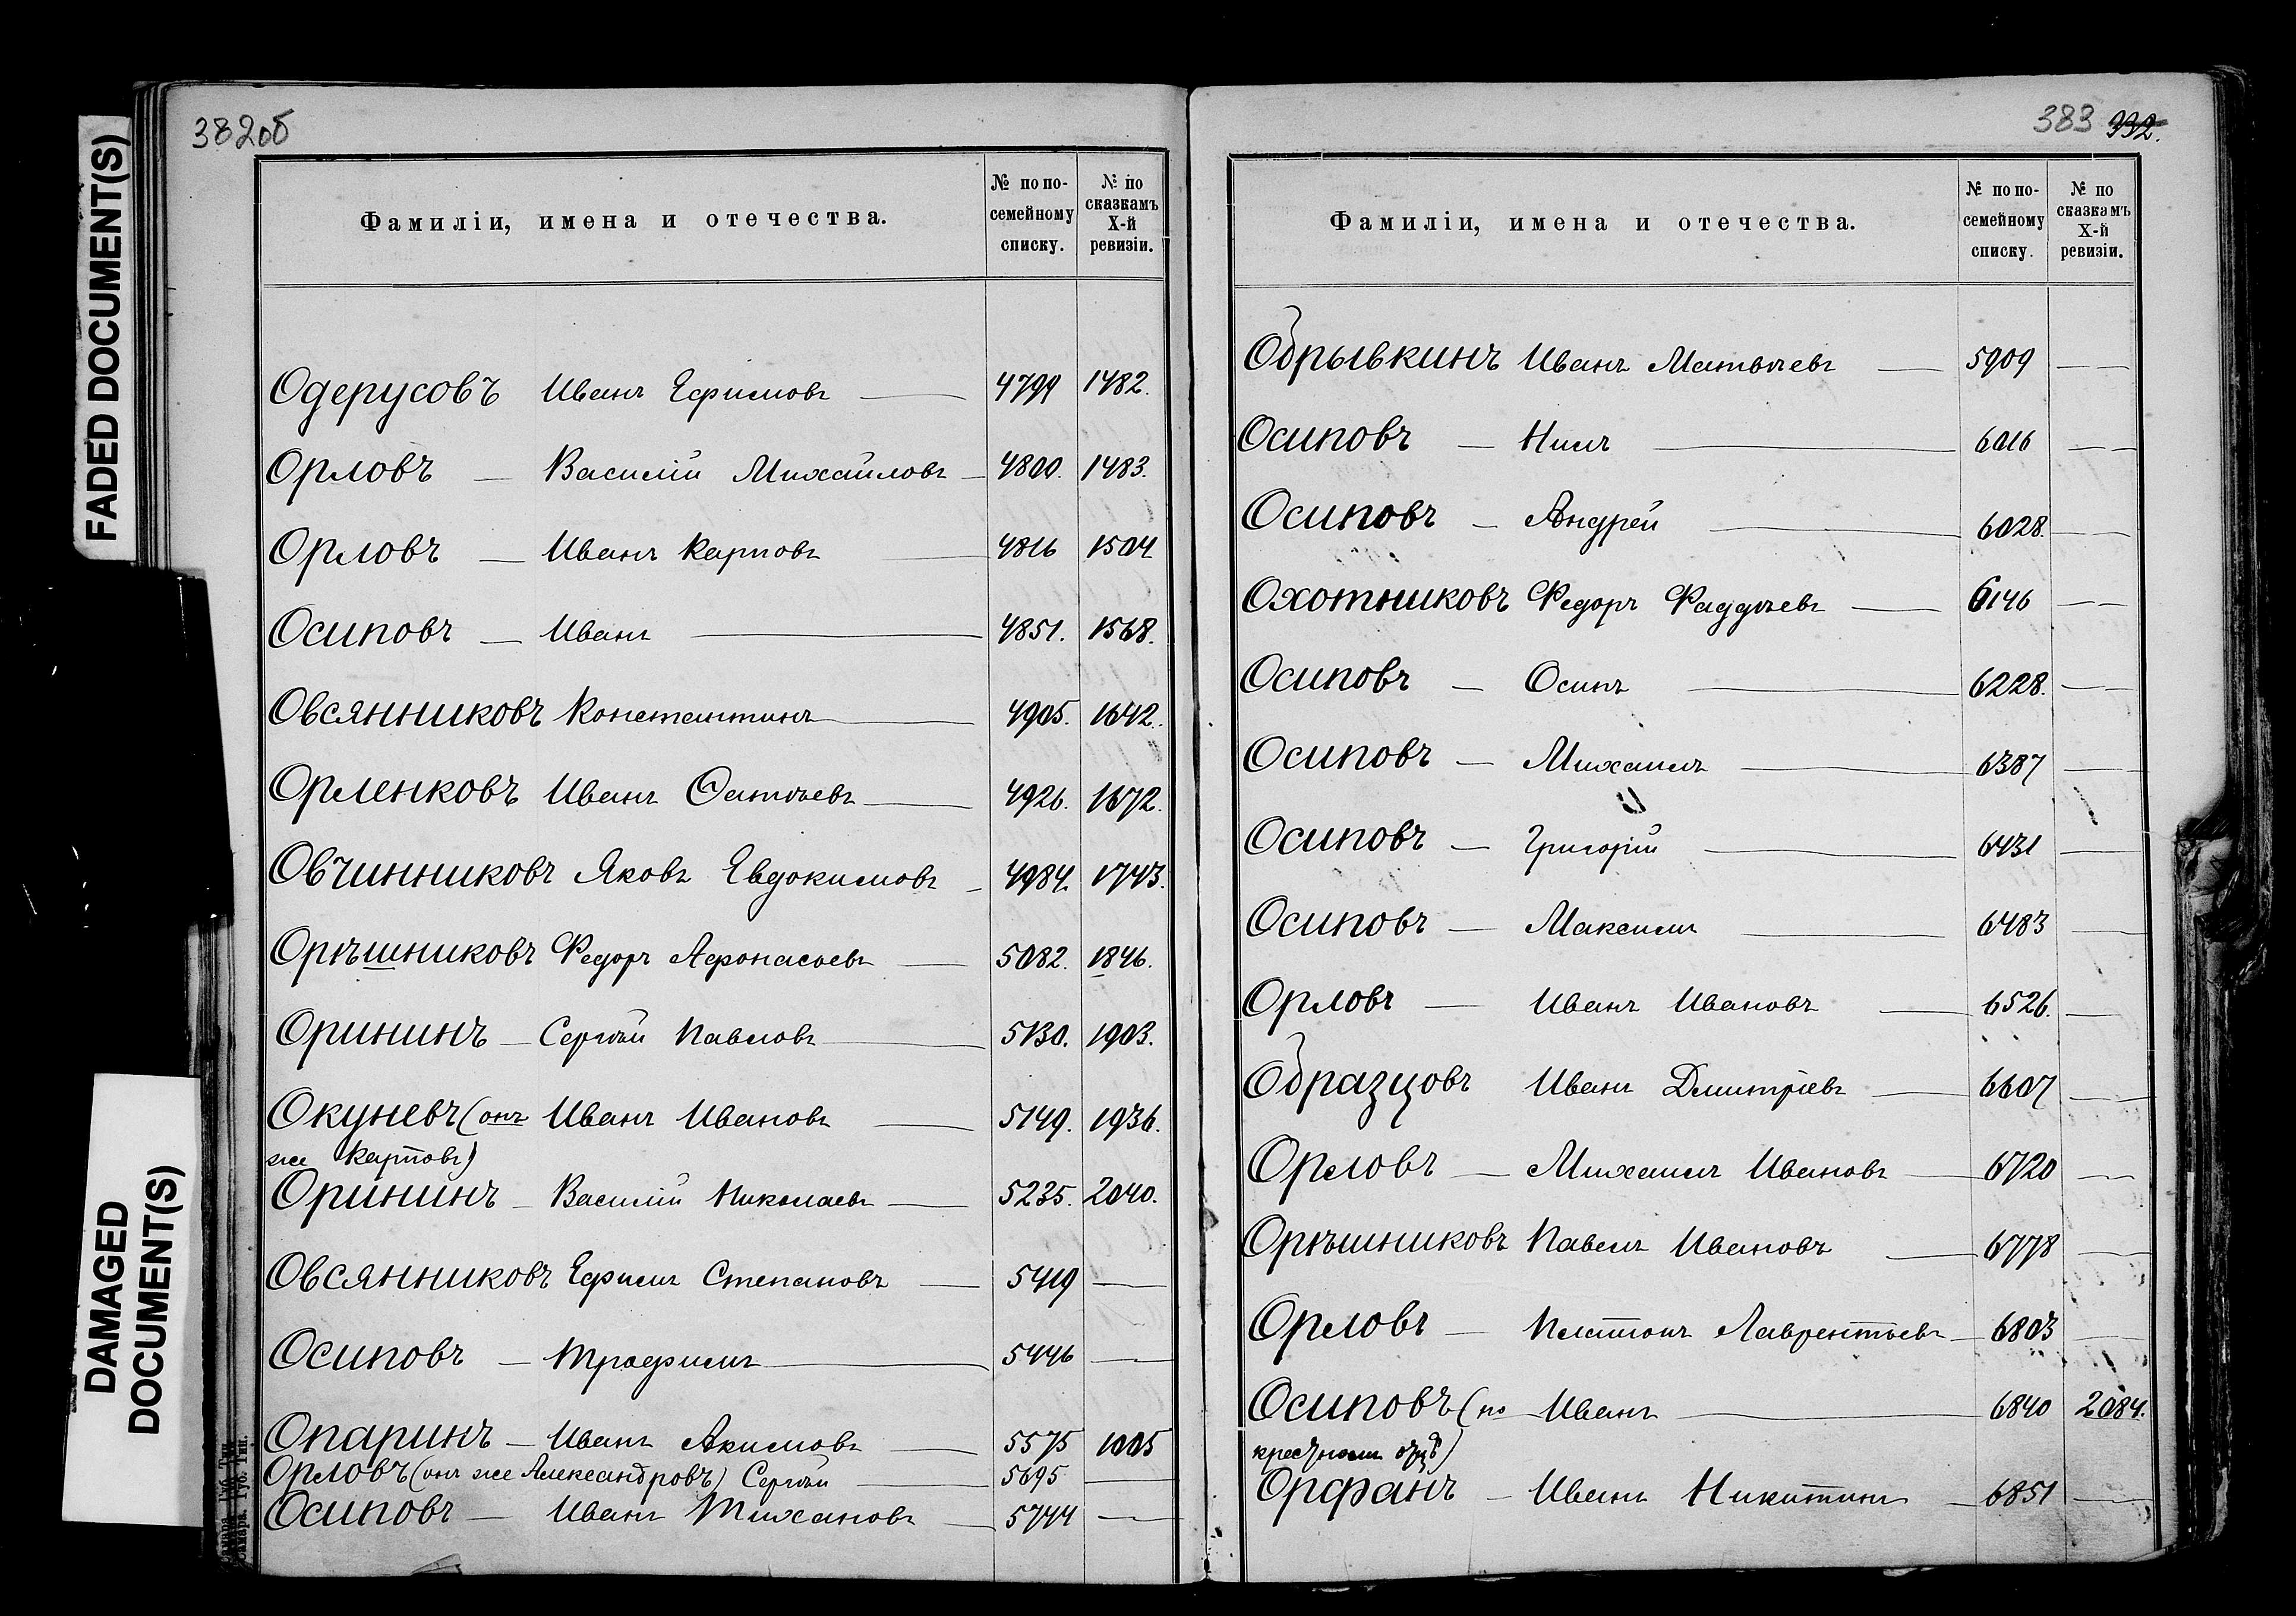 FADED DOCUMENT(S)
DAMAGED
DOCUMENT(S)
382об
Фамиліи, имена и отечества. № по по-семейному списку. № по сказкамъ X-й ревизіи.
Одерусовъ Иванъ Ефимовъ 4799 1482.
Орловъ — Василій Михайловъ — 4800. 1483.
Орловъ — Иванъ Карповъ 4816 1504
Осиповъ — Иванъ — 4851. 1568.
Овсянниковъ Константинъ — 4905. 1642.
Орленковъ Иванъ Фатѣевъ — 4926. 1672.
Овчинниковъ Яковъ Евдокимовъ — 4984. 1743.
Орѣшниковъ Федоръ Афонасьевъ — 5082. 1846.
Орининъ — Сергѣй Павловъ — 5130. 1903.
Окуневъ (онъ Иванъ Ивановъ — 5149. 1936.
же Карповъ)
Орининъ — Василій Николаевъ — 5235. 2040.
Овсянниковъ Ефимъ Степановъ — 5419 —
Осиповъ — Трофимъ — 5446 —
Опаринъ — Иванъ Акимовъ — 5575 1005
Орловъ (онъ же Александровъ) Сергѣй — 5695 —
Осиповъ — Иванъ Тихановъ — 5744 —
Самара. Губ. Тип.
383 332.
Фамиліи, имена и отечества. № по по-семейному списку. № по сказкамъ X-й ревизіи.
Обрывкинъ Иванъ Матвѣевъ — 5909 — —
Осиповъ — Нилъ — 6016 — —
Осиповъ — Андрей — 6028. — —
Охотниковъ Федоръ Фаддѣевъ — 6146 — —
Осиповъ — Осипъ — 6228. — —
Осиповъ — Михаилъ — 6387 —
Осиповъ — Григорій — 6431 —
Осиповъ — Максимъ — 6483 —
Орловъ — Иванъ Ивановъ — 6526. —
Образцовъ Иванъ Дмитріевъ — 6607 — —
Орловъ — Михаилъ Ивановъ — 6720 —
Орѣшниковъ Павелъ Ивановъ — 6778 —
Орловъ — Платонъ Лаврентьевъ — 6803 —
Осиповъ (по Иванъ — 6840 2084.
крестному отцѣ)
Орфанъ — Иванъ Никитинъ — 6851 —